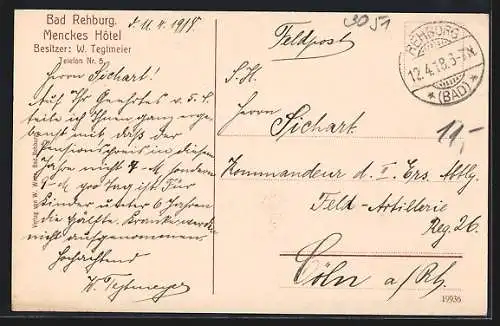 Bad Rehburg.
Menckes Hôtel
Besitzer: W. Tegtmeier
Telefon Nr. 8.
d. 11. 4. 1918.
Herrn Sichart!
Auf Ihr Geehrtes v. 7. 4.
teile ich Ihnen ganz erge-
benst mit, daß der
Pensionspreis in diesem
Jahre nicht 7 M sondern
M pro Tag ist. Für
Kinder unter 6 Jahren
die Hälfte. Kranke werden
nicht aufgenommen.
Hochachtend
W. Tegtmeyer
Feldpost
3051
REHBURG
12.4.18.6-7N
* (BAD) *
19,-
S. H.
Herrn Sichart
Kommandeur d. I Ers. Abtlg.
Feld-Artillerie
Reg. 26.
Cöln a/Rh.
19936